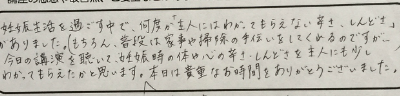 妊娠生活を過ごす中で、何度か「主人にはわかってもらえない辛さ、しんどさ」
がありました。(もちろん、普段は家事や掃除の手伝いをしてくれるのですが…
今日の講演を聴いて、妊娠時の体や心の辛さ・しんどさを主人にも少し
わかってもらえたかと思います。本日は貴重なお時間をありがとうございました。